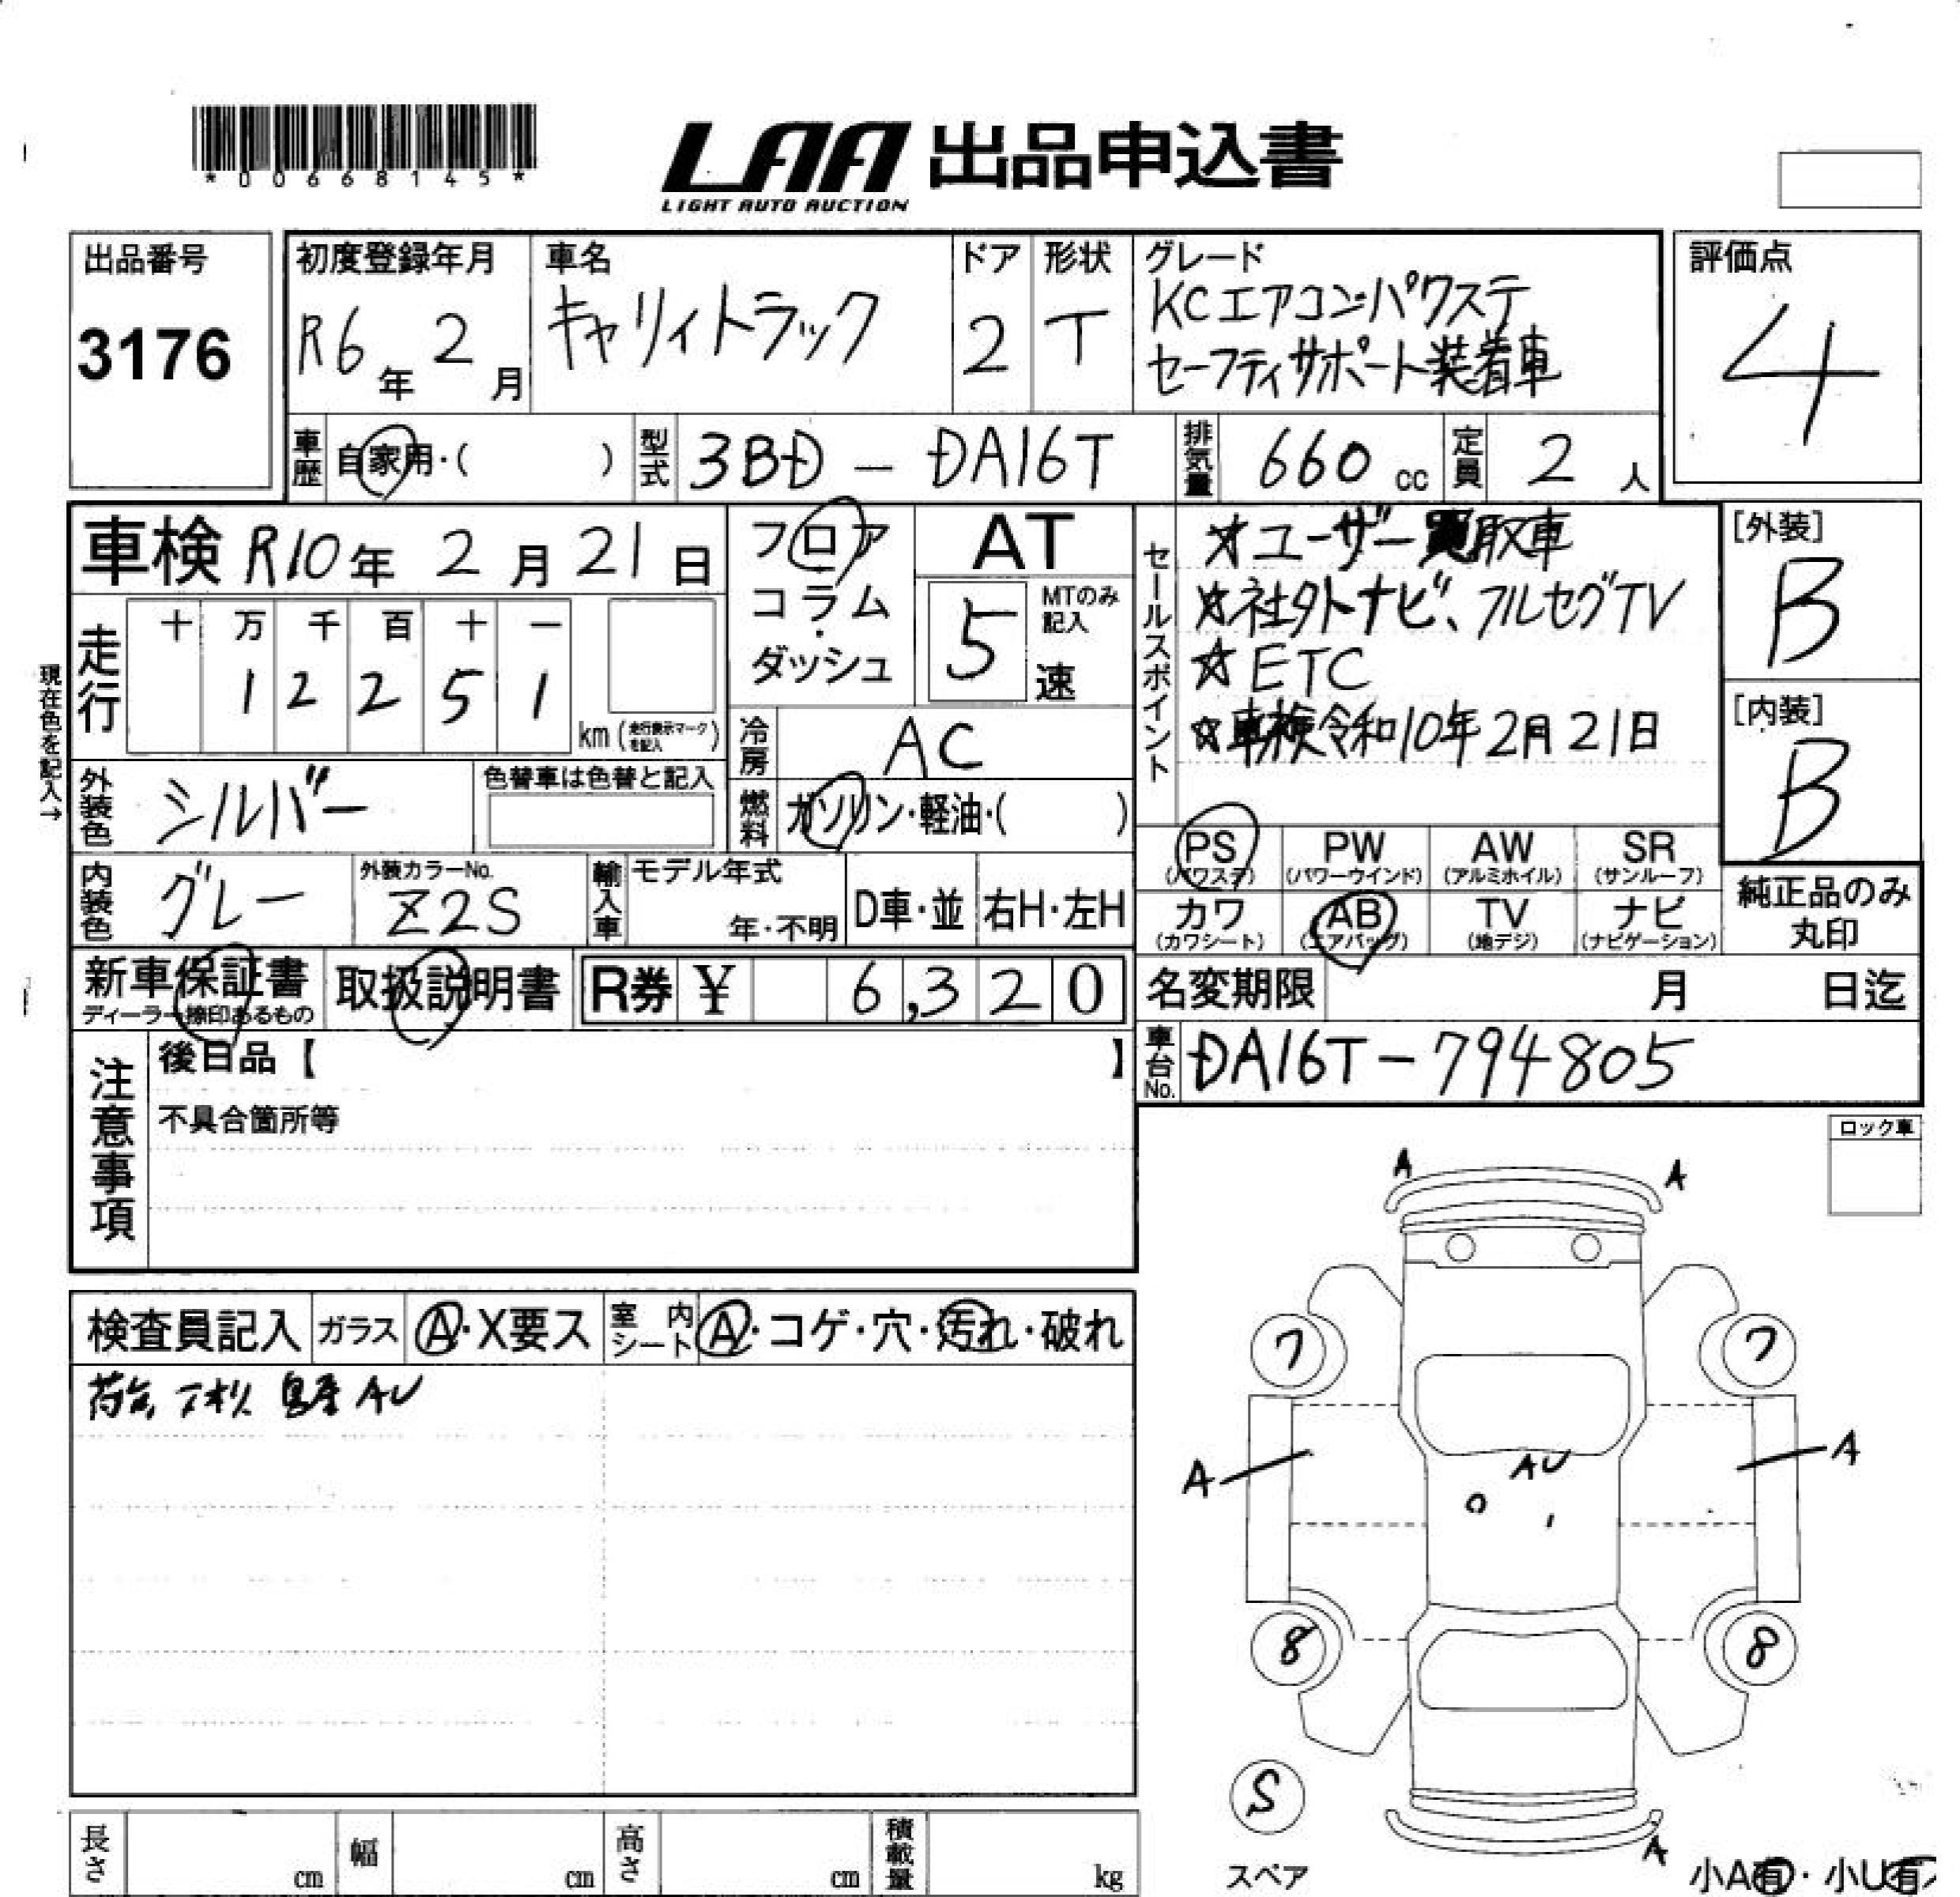 *00668145*
LAA 出品申込書
LIGHT AUTO AUCTION
出品番号
3176
初度登録年月
R6年 2月
車名
キャリィトラック
ドア
2
形状
T
グレード
KCエアコン・パワステ
セーフティサポート装着車
評価点
4
車歴 自家用・( )
型式 3BD - DA16T
排気量 660 cc
定員 2 人
車検 R10年 2月 21日
フロア
コラム
・
ダッシュ
AT
5
MTのみ
記入
速
走行
十 万 千 百 十 一
1 2 2 5 1
km (走行表示マークを記入)
現在色を記入→
冷房 AC
燃料 ガソリン・軽油・( )
外装色 シルバー
色替車は色替と記入
内装色 グレー
外装カラーNo.
Z2S
輸入車 モデル年式
年・不明
D車・並
右H・左H
セールスポイント
☆ユーザー買取車
☆社外ナビ、フルセグTV
☆ETC
☆車検令和10年2月21日
[外装]
B
[内装]
B
PS (パワステ)
PW (パワーウインド)
AW (アルミホイル)
SR (サンルーフ)
カワ (カワシート)
AB (エアバッグ)
TV (地デジ)
ナビ (ナビゲーション)
純正品のみ
丸印
新車保証書
ディーラー捺印あるもの
取扱説明書
R券 ¥ 6,320
名変期限 月 日迄
車台No. DA16T-794805
注意事項
後日品【 】
不具合箇所等
ロック車
検査員記入
ガラス A・X要ス
室内シート A・コゲ・穴・汚れ・破れ
荷台 AU
A
A
7
7
A
A
AU
8
8
S
スペア
A
小A有・小U有
長さ cm
幅 cm
高さ cm
積載量 kg